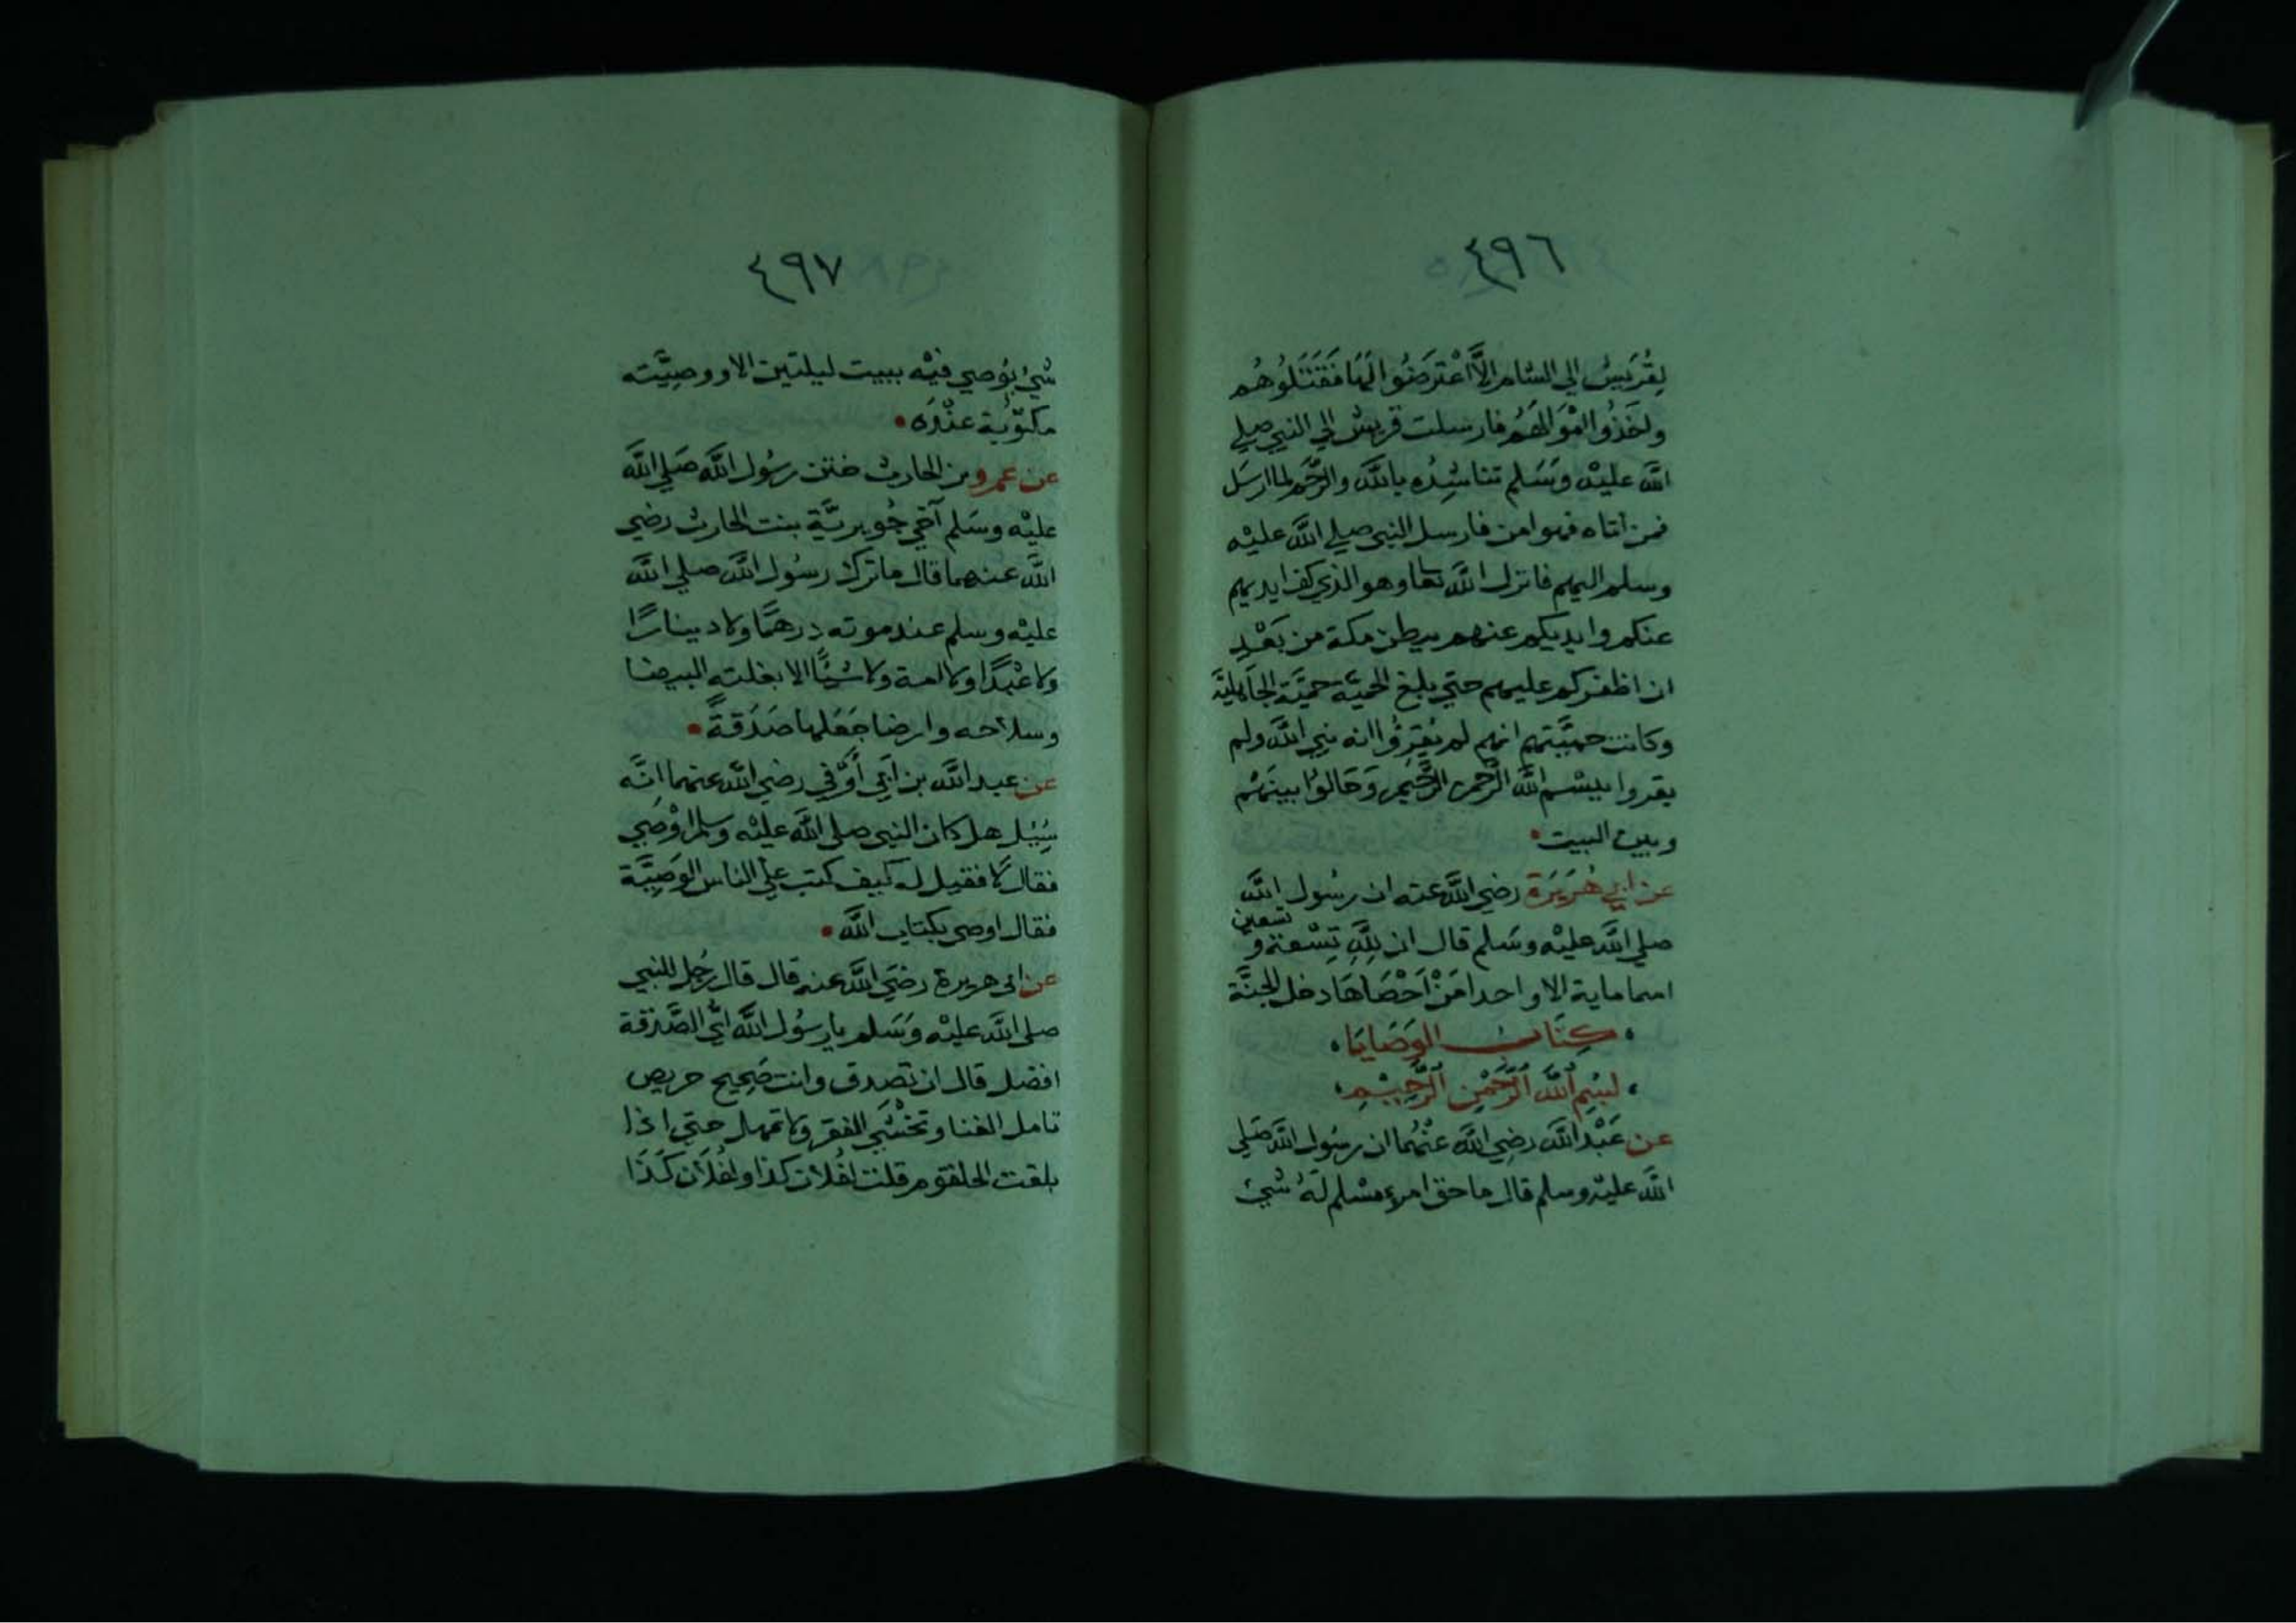 ٤٩٦
لِقُرَيْش الي الشام الَّا اعْتَرَضُوا لَهَا فَقَتَلُوهُم
واَخَذُوا امْوَالَهُم فارسلت قريش الي النبي صلي
اللَّه عليْه وَسَلم تناشِدُه باللَّه والرَّحِم لما ارسَل
فمن اتاه فهوا من فارسل النبي صلي اللَّه عليْه
وسلم اليهم فانزل اللَّه تعا وهو الذي كف ايديهم
عنكم وايديكم عنهم ببطن مكة من بَعْدِ
ان اظفركم عليهم حتي بلغ الحميَّة حميَّة الجَاهليَّة
وكانت حميَّتهم انهم لم يُقِرُّوا انه نبي اللَّه ولم
يقروا ببِسْم اللَّه الرَّحمن الرَّحيم وَحَالوُا بينَهُم
وبين البيت
عن ابي هُرَيَرَة رضي اللَّه عنه ان رسُول اللَّه
تسعين
صلي اللَّه عليْه وسَلم قال ان لِلَّهِ تِسْعة و
اسما ماية الا واحدا مَنْ اَحْصَاهَا دخل الجنَّة
كِتَاب الوَصَايَا
لبسْمِ اللَّه الرَّحْمٰنِ الرَّحِيْمِ
عن عَبْد اللَّه رضِي اللَّه عنْهُما ان رسُول اللَّه صَلي
اللَّه عليْه وسلم قال ما حق امرء مسْلم لَهُ شيء
٤٩٧
شيء يوُصي فيْه يبيت ليلتين الا ووصِيَّته
مكتوُبة عنْدَه
عن عمرو بن الحارث ختن رسُول اللَّه صَلي اللَّه
عليْه وسَلم اَخي جُويريَّة بنت الحارث رضي
اللَّه عنهما قال ما ترك رسُول اللَّه صلي اللَّه
عليْه وسلم عند موته درهمًا ولا دينارًا
ولا عبْدًا ولا امة ولا شيًا الا بغلته البيضا
وسلاحه وارضا جَعَلها صَدَقةً
عن عبد اللَّه بن اَبي اَوْفي رضي اللَّه عنهما انَّه
سُئِل هل كان النبي صلي اللَّه عليْه وسلم اوْصي
فقال لا فقيل له كيف كتب علي الناس الوَصِيَّة
فقال اوصي بكتاب اللَّه
عن ابى هريرة رضَي اللَّه عنه قال قال رجُل للنبي
صلي اللَّه عليْه وَسَلم يا رسُول اللَّه اَيُّ الصَّدَقة
افضل قال ان تصدق وانت صَحِيح حريص
تامل الغنا وتخشَي الفقر ولا تمهل حتي اذا
بلغت الحلقوم قلت لفُلان كذا ولفُلاَن كَذَا